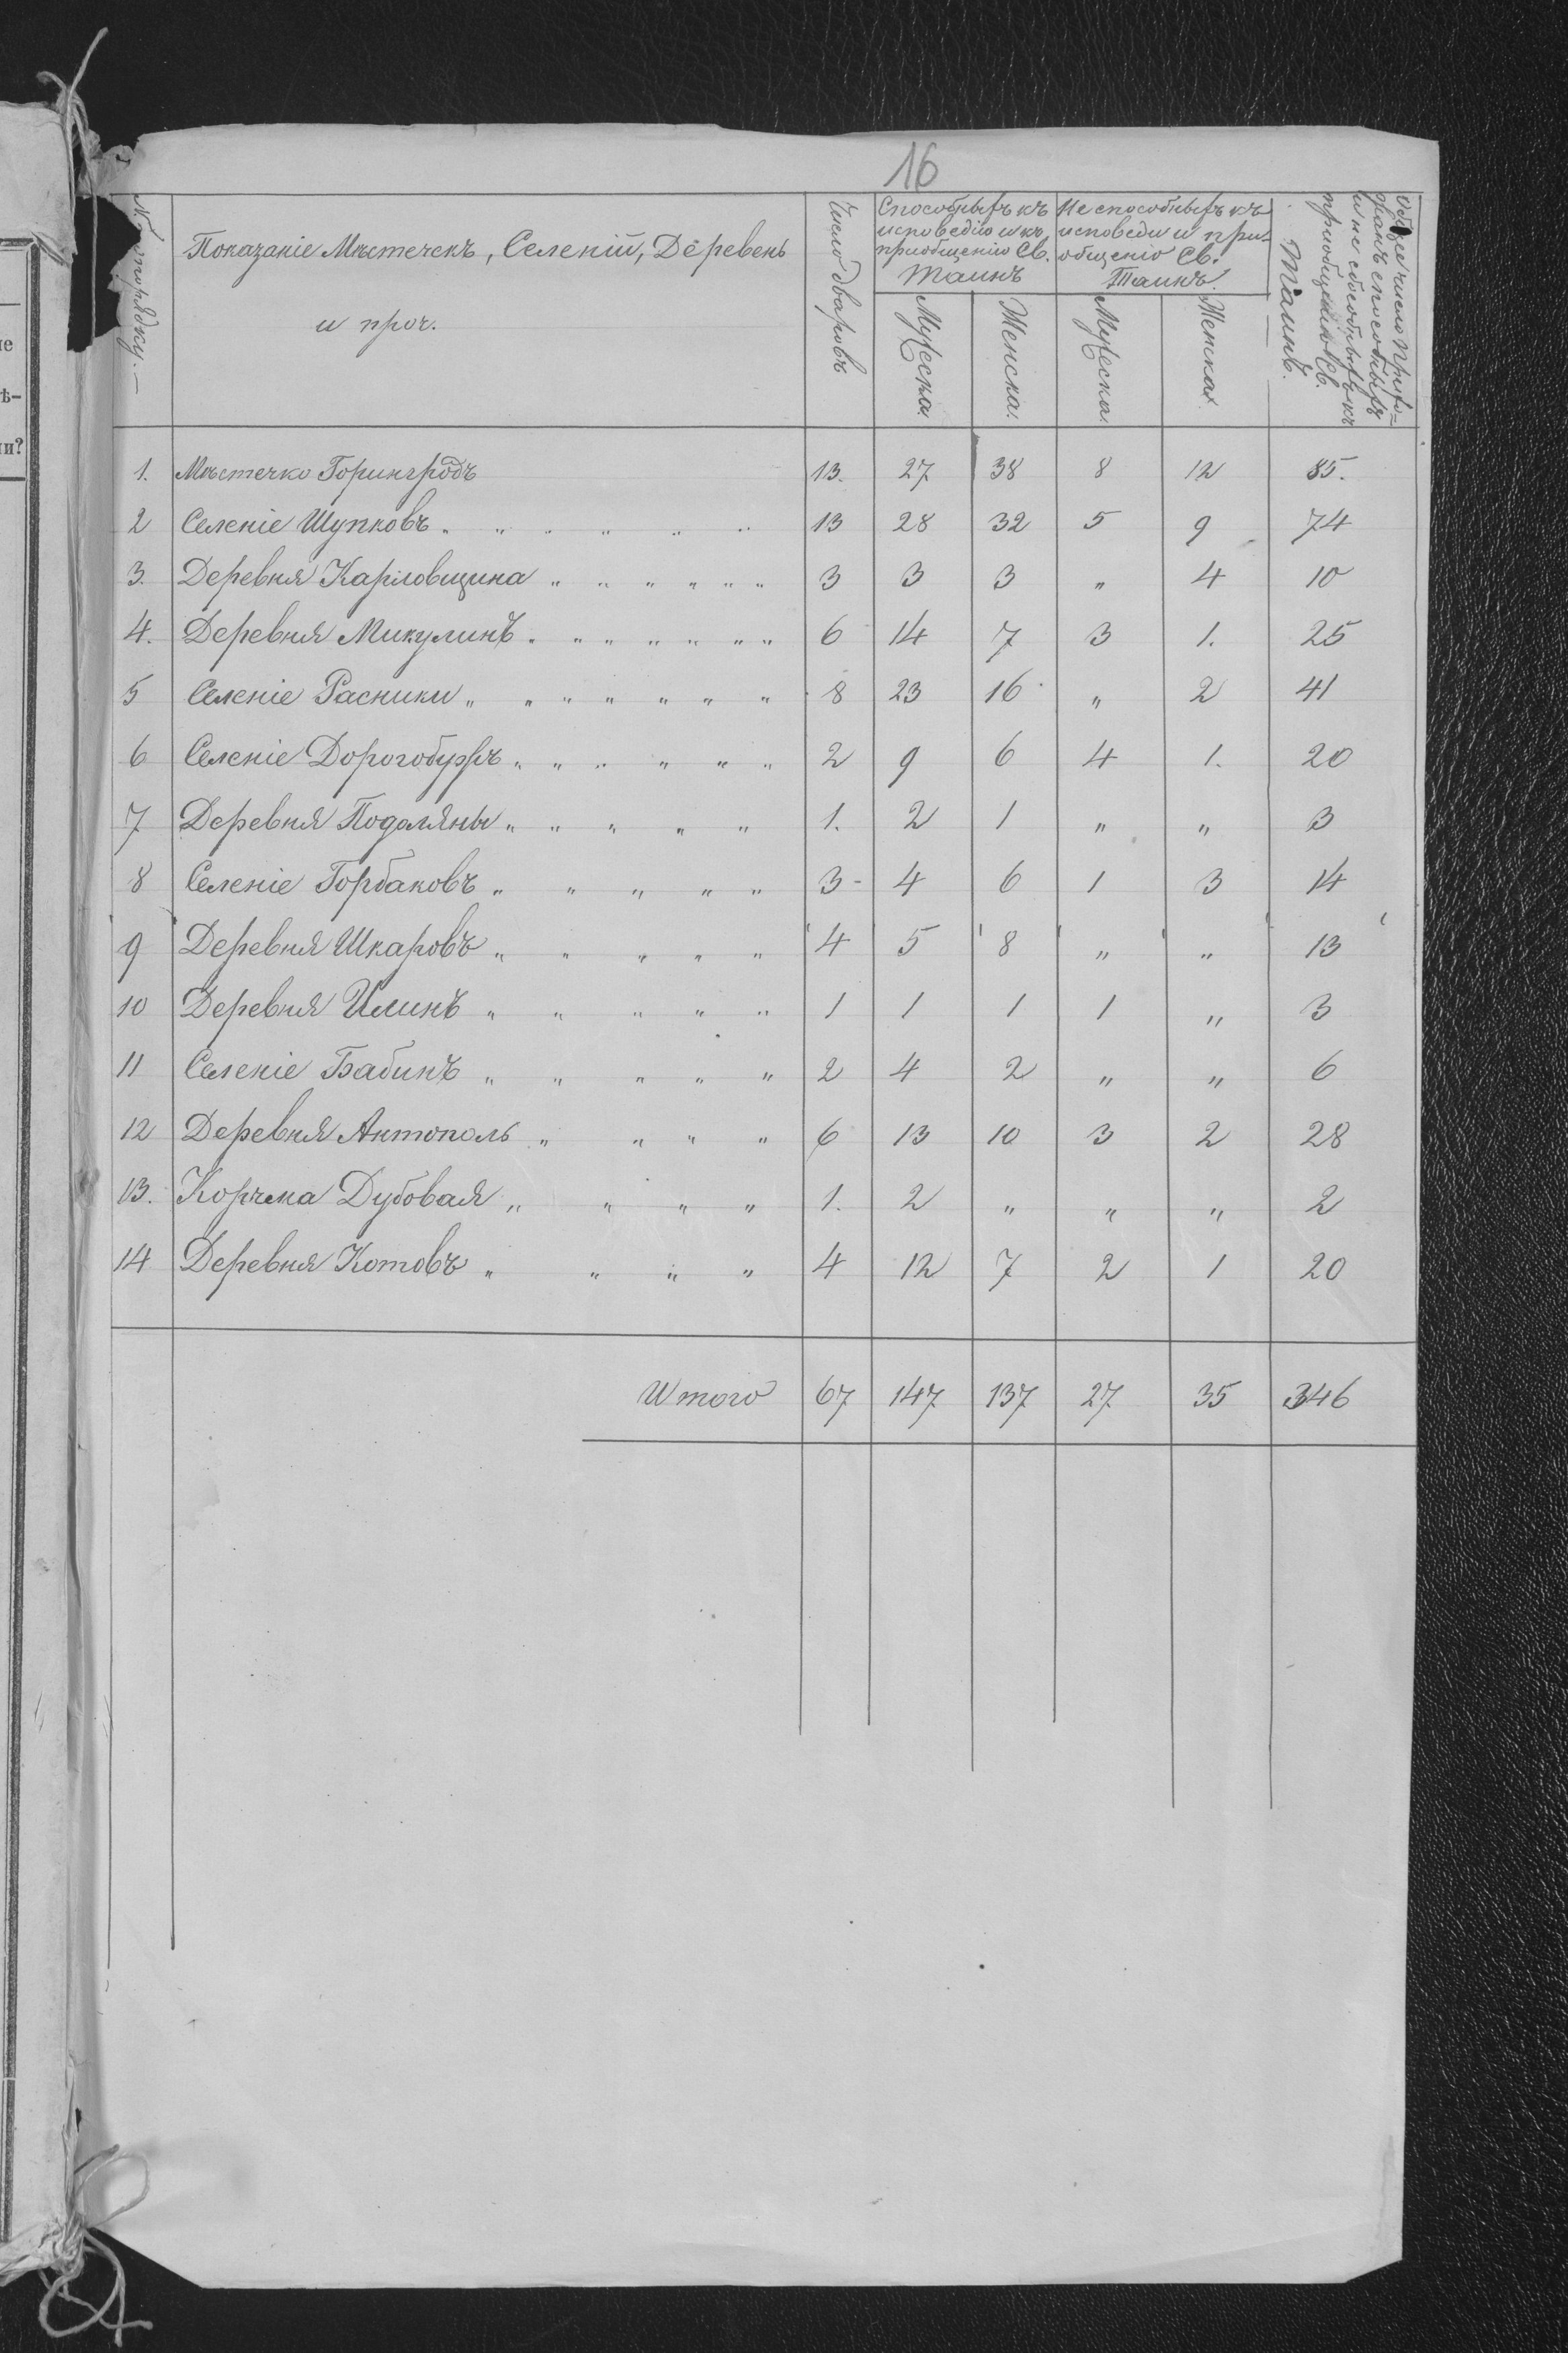 16
№ по порядку.
Показаніе Мѣстечекъ, Селеній, Деревень
и проч.
Число дворовъ
Способныхъ къ
исповедію и къ
приобщенію Св.
Таинъ
Неспособныхъ къ
исповеди и при-
общенію Св.
Таинъ.
Мужеска.
Женска.
Мужеска.
Женска.
Общее число прихо-
жанъ способныхъ
и не способныхъ къ
приобщенію Св.
Таинъ.
1. Мѣстечко Горинградъ 13. 27 38 8 12 85.
2 Селеніе Шупковъ „ „ „ „ „ „ 13 28 32 5 9 74
3. Деревня Карловщина „ „ „ „ „ „ 3 3 3 „ 4 10
4. Деревня Микулинъ „ „ „ „ „ „ „ 6 14 7 3 1. 25
5 Селеніе Расники „ „ „ „ „ „ „ 8 23 16 „ 2 41
6 Селеніе Дорогобужъ „ „ „ „ „ „ 2 9 6 4 1. 20
7 Деревня Подоляны „ „ „ „ „ 1. 2 1 „ „ 3
8 Селеніе Горбаковъ „ „ „ „ „ 3 - 4 6 1 3 14
9 Деревня Шкаровъ „ „ „ „ „ 4 5 8 „ „ 13
10 Деревня Илинъ „ „ „ „ „ 1 1 1 1 „ 3
11 Селеніе Бабинъ „ „ „ „ „ 2 4 2 „ „ 6
12 Деревня Антополь „ „ „ „ 6 13 10 3 2 28
13. Корчма Дубовая „ „ „ „ 1. 2 „ „ „ 2
14 Деревня Котовъ „ „ „ „ 4 12 7 2 1 20
Итого 67 147 137 27 35 346